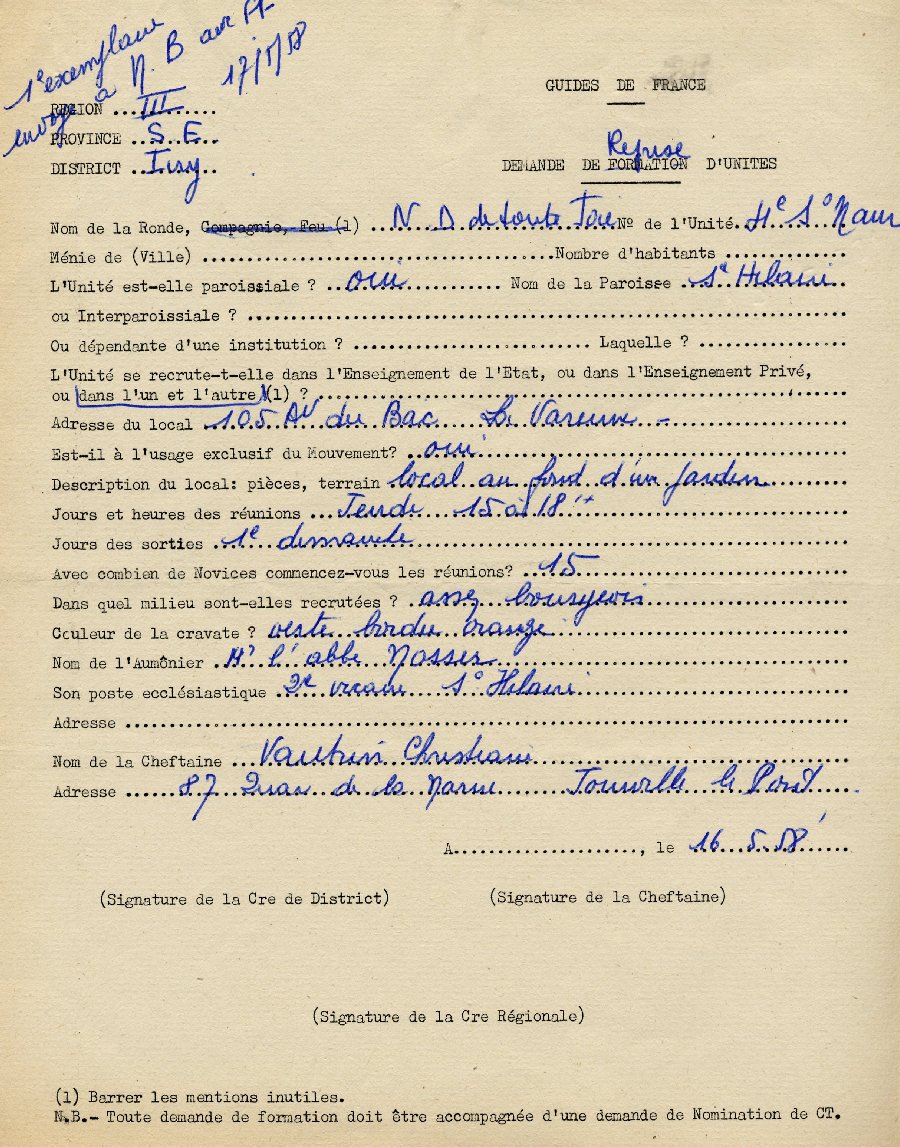 1e exemplaire
envoyé à N. B
17/5/58
GUIDES DE FRANCE
REGION ... III ...
PROVINCE .. S. E..
DISTRICT ..
Reprise
DEMANDE DE FORMATION D'UNITES
Nom de la Ronde, Compagnie, Feu (1) ... N D de toute Joie Nº de l'Unité.. St Maur
Ménie de (Ville) ... Nombre d'habitants ...
L'Unité est-elle paroissiale ? .. oui ... Nom de la Paroisse .. St Hilaire ..
ou Interparoissiale ? ...
Ou dépendante d'une institution ? ... Laquelle ? ...
L'Unité se recrute-t-elle dans l'Enseignement de l'Etat, ou dans l'Enseignement Privé,
ou dans l'un et l'autre (1) ? ...
Adresse du local .. 105 Av du Bac La Varenne -
Est-il à l'usage exclusif du Mouvement? .. oui ...
Description du local: pièces, terrain local au fond d'un jardin
Jours et heures des réunions ... Jeudi 15 à 18 H
Jours des sorties .. 1e dimanche ...
Avec combien de Novices commencez-vous les réunions? .. 15 ...
Dans quel milieu sont-elles recrutées ? . assez bourgeois ...
Couleur de la cravate ? verte bordée orange ...
Nom de l'Aumônier .. Mr l'abbé Nasser ...
Son poste ecclésiastique .. 2e vicaire St Hilaire ...
Adresse ...
Nom de la Cheftaine ... Vautrin Christiane
Adresse ...... 87 Quai de la Marne Joinville le Pont
A...................., le 16. 5. 58
(Signature de la Cre de District) (Signature de la Cheftaine)
(Signature de la Cre Régionale)
(1) Barrer les mentions inutiles.
N.B.- Toute demande de formation doit être accompagnée d'une demande de Nomination de CT.